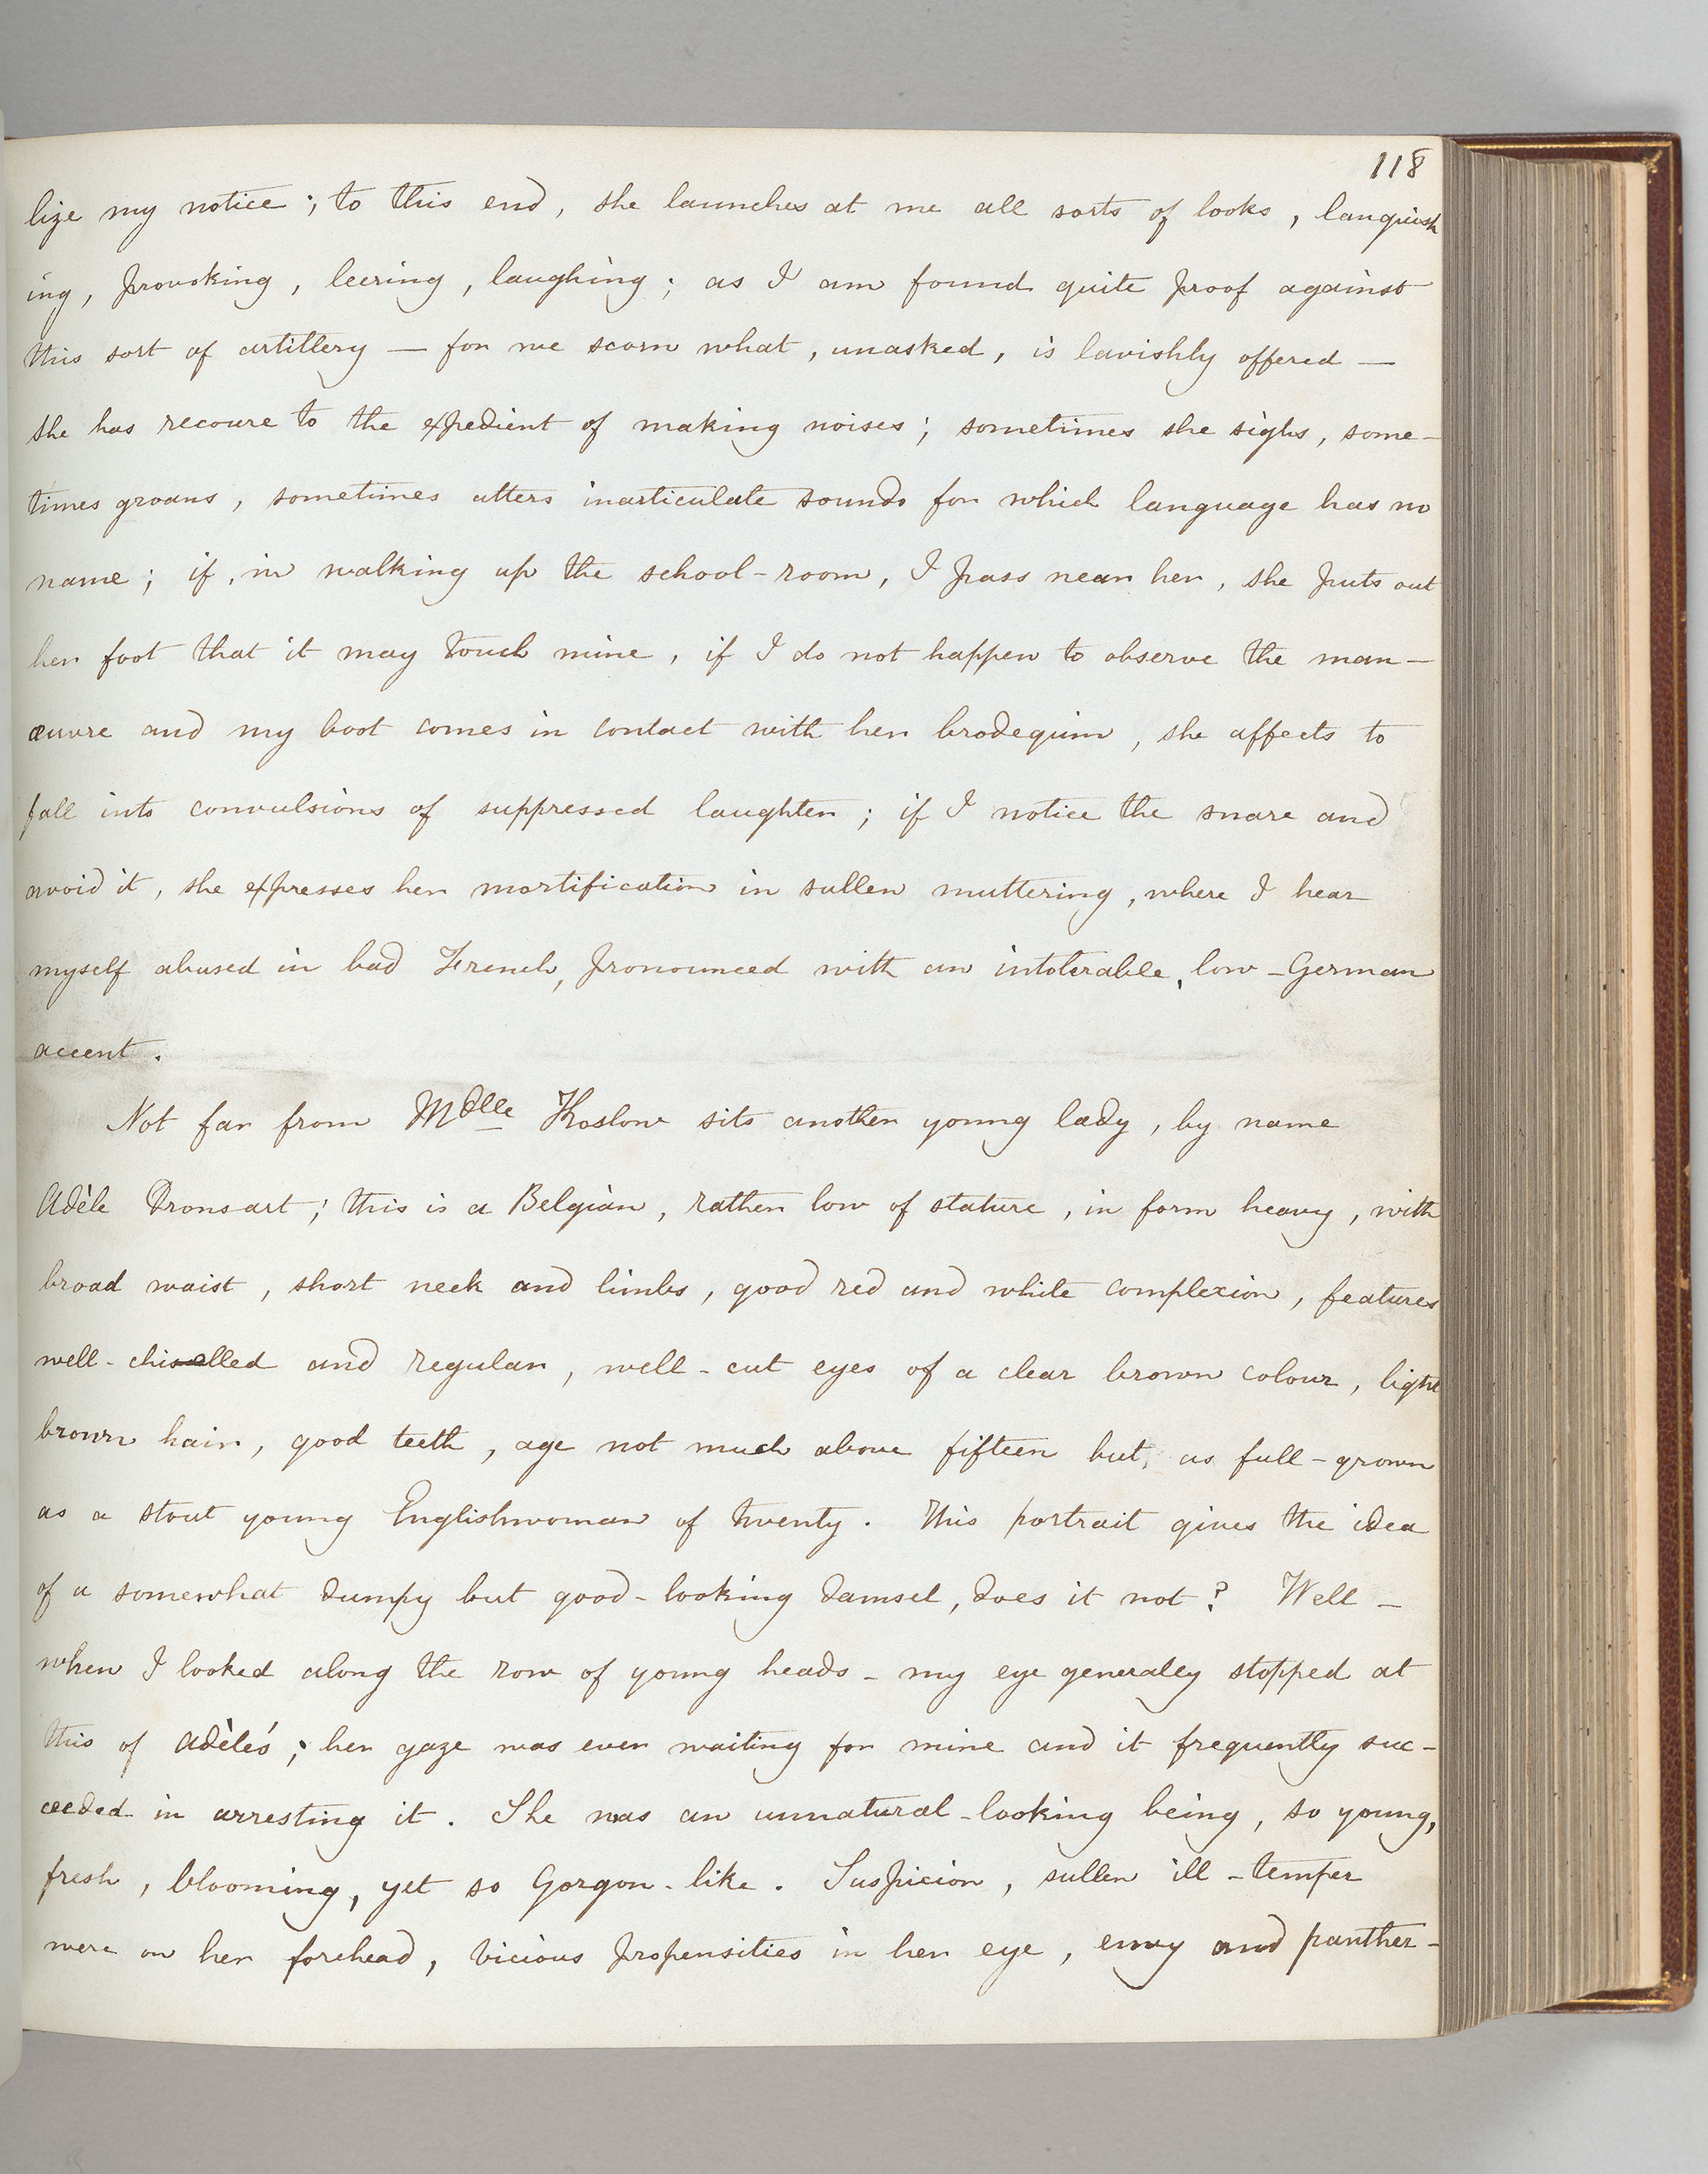 118
lize my notice; to this end, she launches at me all sorts of looks, languish
ing, provoking, leering, laughing; as I am found quite proof against
this sort of artillery — for we scorn what, unasked, is lavishly offered —
she has recoure to the expedient of making noises; sometimes she sighs, some-
times groans, sometimes utters inarticulate sounds for which language has no
name; if, in walking up the school-room, I pass near her, she puts out
her foot that it may touch mine, if I do not happen to observe the man-
œuvre and my boot comes in contact with her brodequin, she affects to
fall into convulsions of suppressed laughter; if I notice the snare and
avoid it, she expresses her mortification in sullen muttering, where I hear
myself abused in bad French, pronounced with an intolerable, low-German
accent.
Not far from Mdlle Koslow sits another young lady, by name
Adèle Dronsart; this is a Belgian, rather low of stature, in form heavy, with
broad waist, short neck and limbs, good red and white complexion, features
well-chiselled and regular, well-cut eyes of a clear brown colour, light
brown hair, good teeth, age not much above fifteen but, as full-grown
as a stout young Englishwoman of twenty. This portrait gives the idea
of a somewhat dumpy but good-looking damsel, does it not? Well -
when I looked along the row of young heads - my eye generally stopped at
this of Adèle's; her gaze was ever waiting for mine and it frequently suc-
ceeded in arresting it. She was an unnatural-looking being, so young,
fresh, blooming, yet so Gorgon-like. Suspicion, sullen ill-temper
were on her forehead, vicious propensities in her eye, envy and panther-